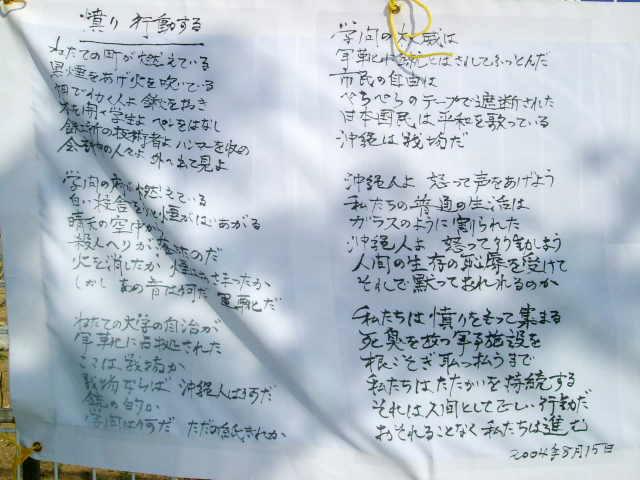 憤り 行動する
わたての町が燃えている
黒煙をあげ火を吹いている
畑で働く人よ 鍬を
本を開く学生よ ペンをはなし
技術者よ ハンマーを収め
人々よ 外へ出て見よ
学問の府が燃えている
白い校舎をつつむ煙がはいあがる
晴天の空中から
殺人ヘリが 落ちたのだ
火を消したか 煙はおさまったか
しかし あの音は何だ 軍靴だ
わたての大学の自治が
軍靴に占拠された
ここは戦場か
戦場ならば 沖縄人は何だ
銃の的か
学問は何だ ただの
学問の大城は
軍靴に
市民の自由は
ぺらぺらのテープで遮断された
日本国民は平和を歌っている
沖縄は戦場だ
沖縄人よ 怒って声をあげよう
私たちの普通の生活は
ガラスのように割られた
沖縄人よ 怒って行動しよう
人間の生存の恥辱を受けて
それで黙っておれれるのか
私たちは憤りをもって集まる
死臭を放つ軍事施設を
根こそぎ取っ払うまで
私たちはたたかいを持続する
それは人間として正しい行動だ
おそれることなく私たちは進む
2004年8月15日